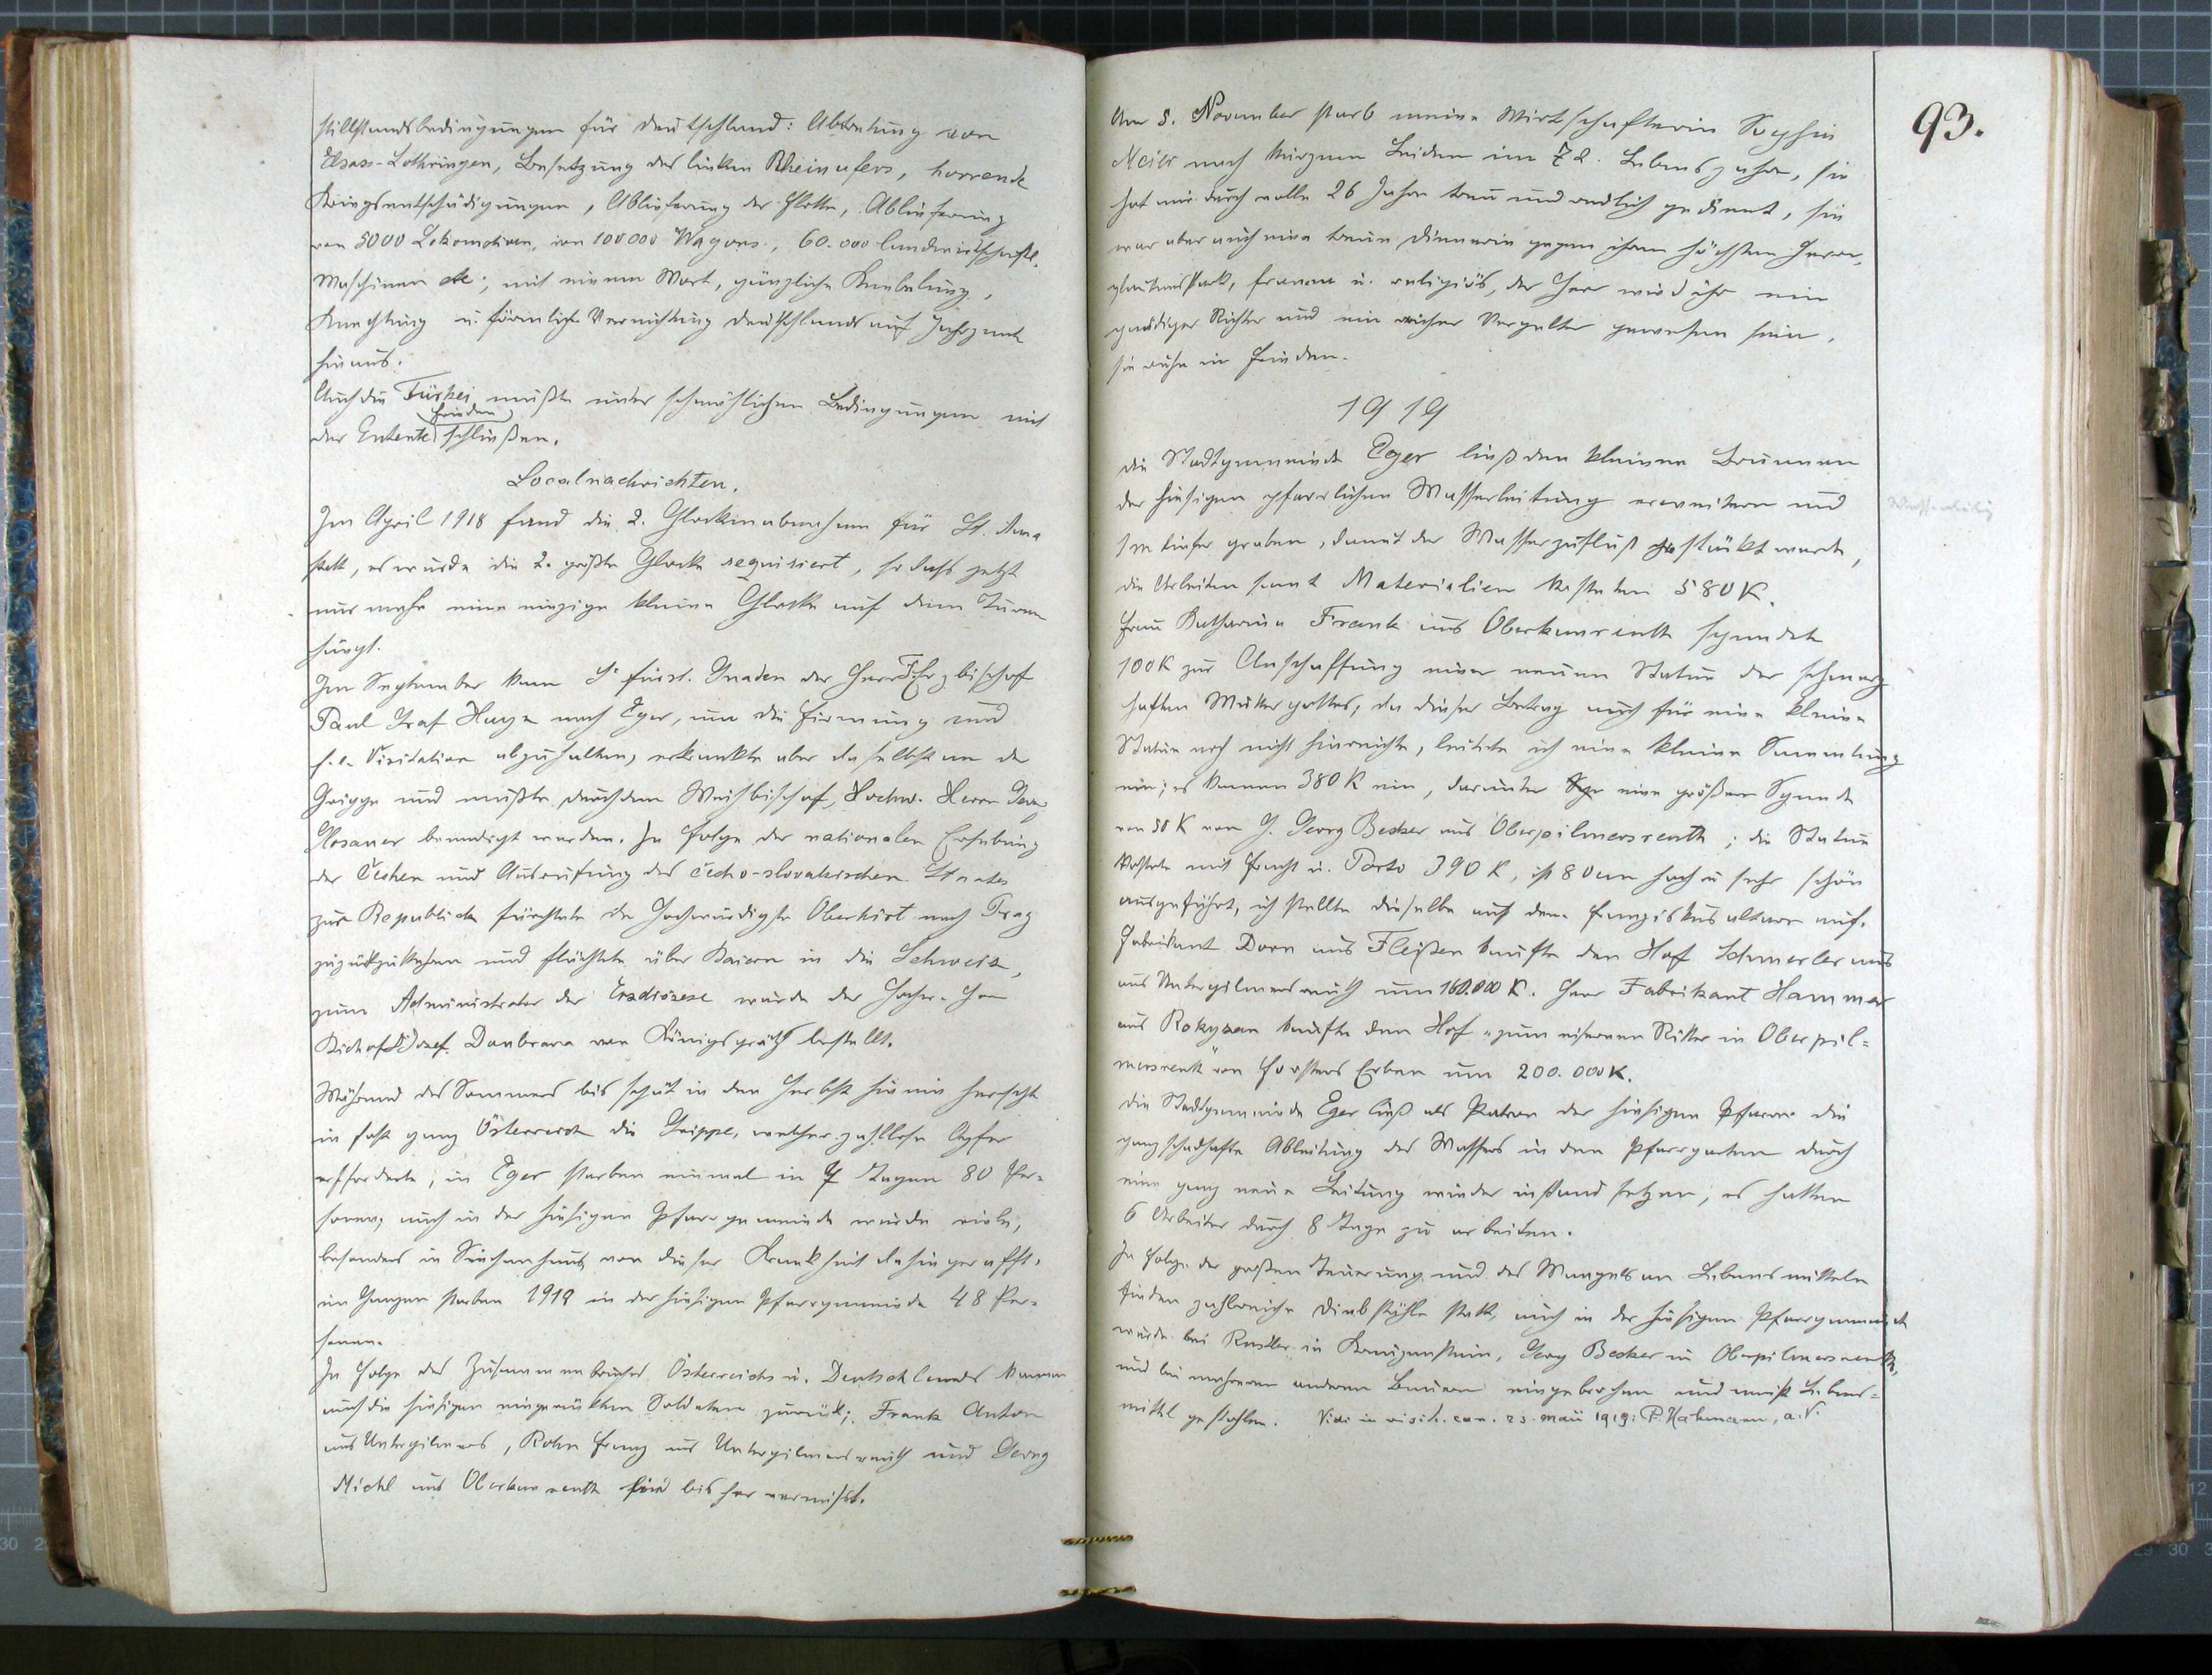 stillstandsbedingungen für Deutschland: Abtretung von
Elsass-Lothringen, Besetzung des linken Rheinufers, horrende
Kriegsentschädigungen, Ablieferung der Flotte, Ablieferung
von 5000 Lokomotiven, von 100000 Wagons, 60.000 landwirtschaftl.
Maschinen etc; mit einem Wort, gänzliche Knebelung,
Knechtung u. förmliche Vernichtung Deutschlands auf Jahrzente
hinaus.
Auch die Türkei mußte unter schmählichen Bedingungen mit
der Entente Frieden schließen.
Localnachrichten.
Im April 1918 fand die 2. Glockenabnahme für St. Anna
statt, es wurde die 2. größte Glocke requiriert, so daß jetzt
nur mehr eine einzige kleine Glocke auf dem Turm
hängt.
Im September kam Sr fürst. Gnaden der Herr F Erzbischof
Paul Graf Huyn nach Eger, um die Firmung und
h.e. Visitation abzuhalten, erkrankte aber daselbst an der
Grippe und mußte durch den Weihbischof, Hochw. Herrn
Glosauer beendigt werden. In Folge der nationalen Erhebung
der Čechen und Ausrufung des čecho-slovakischen Staates
zur Republick fürchtete der hochwürdigste Oberhirt nach Prag
zurückzukehren und flüchtete über Baiern in die Schweiz,
zum Administrator der Erzdiözese wurde der Hochw. Herr
Bischof Dr Josef Doubrava von Königgrätz bestellt.
Während des Sommers bis spät in den Herbst hinein herrschte
in fast ganz Österreich die Grippe, welcher zahllose Opfer
erforderte; in Eger starben einmal in 7 Tagen 80 Per-
sonen, auch in der hiesigen Pfarrgemeinde wurde viele,
besonders in Siechenhaus von dieser Krankheit dahingerafft.
im Ganzen starben 1918 in der hiesigen Pfarrgemeinde 48 Per-
sonen.
In Folge des Zusammenbruches Österreichs u. Deutschlands kamen
auch die hiesigen eingerückten Soldaten zurück; Frank Anton
aus Unterpilmers, Rohn Franz aus Unterpilmersreuth und Georg
Michl aus Oberkunreuth sind bisher vermißt.
93.
Am 5. November starb meine Wirtschafterin Sophie
Meier nach kurzem Leiden im 72. Lebensjahre, sie
hat mir durch volle 26 Jahre treu und redlich gedient, sie
war aber auch eine treue Dienerin gegen ihren höchsten Herrn,
glaubensstark, fromm u. religiös, der Herr wird ihr ein
gnädiger Richter und ein reicher Vergelter gewesen sein,
sie ruhe in Frieden.
1919
Die Stadtgemeinde Eger ließ den kleinen Brunnen
der hiesigen pfarrlichen Wasserleitung erweitern und
1 m tiefer graben, damit der Wasserzufluß gestärkt werde,
die Arbeiten samt Materialien kosteten 580 K.
Frau Katharina Frank aus Oberkunreuth spendete
100 K zur Anschaffung einer neuen Statue der schmerz
haften Muttergottes, da dieser Betrag auch für eine kleine
Statue noch nicht hinreichte, leitete ich eine kleine Sammlung
ein; es kamen 380 K ein, darunter eine größere Spende
von 50 K von H. Georg Becker aus Oberpilmersreuth; die Statue
kostete mit Fracht u. Porto 390 K, ist 80 cm hoch u sehr schön
ausgeführt, ich stellte dieselbe auf dem Franziskusaltare auf.
Fabrikant Dorn aus Fleißen kaufte den Hof Schmerler aus
aus Unterpilmersreuth um 160.000 K. Herr Fabrikant Hammer
aus Rokyzan kaufte den Hof "zum eisernen Ritter in Oberpil-
mersreuth" von Forsters Erben um 200.000 K.
Die Stadtgemeinde Eger ließ als Patron der hiesigen Pfarre die
ganz schadhafte Ableitung des Wassers in den Pfarrgarten durch
eine ganz neue Leitung wieder instand setzen, es hatten
6 Arbeiter durch 8 Tage zu arbeiten.
In Folge der großen Teuerung und des Mangels an Lebensmitteln
finden zahlreiche Diebstähle statt, auch in der hiesigen Pfarrgemeinde
wurde bei Rustler in Kreuzenstein, Georg Becker in Oberpilmersreuth,
und bei mehreren anderen Bauern eingebrochen und meist Lebens-
mittel gestohlen. Vidi in visit. can. 23. maii 1919: P. Hahmann, a.V.